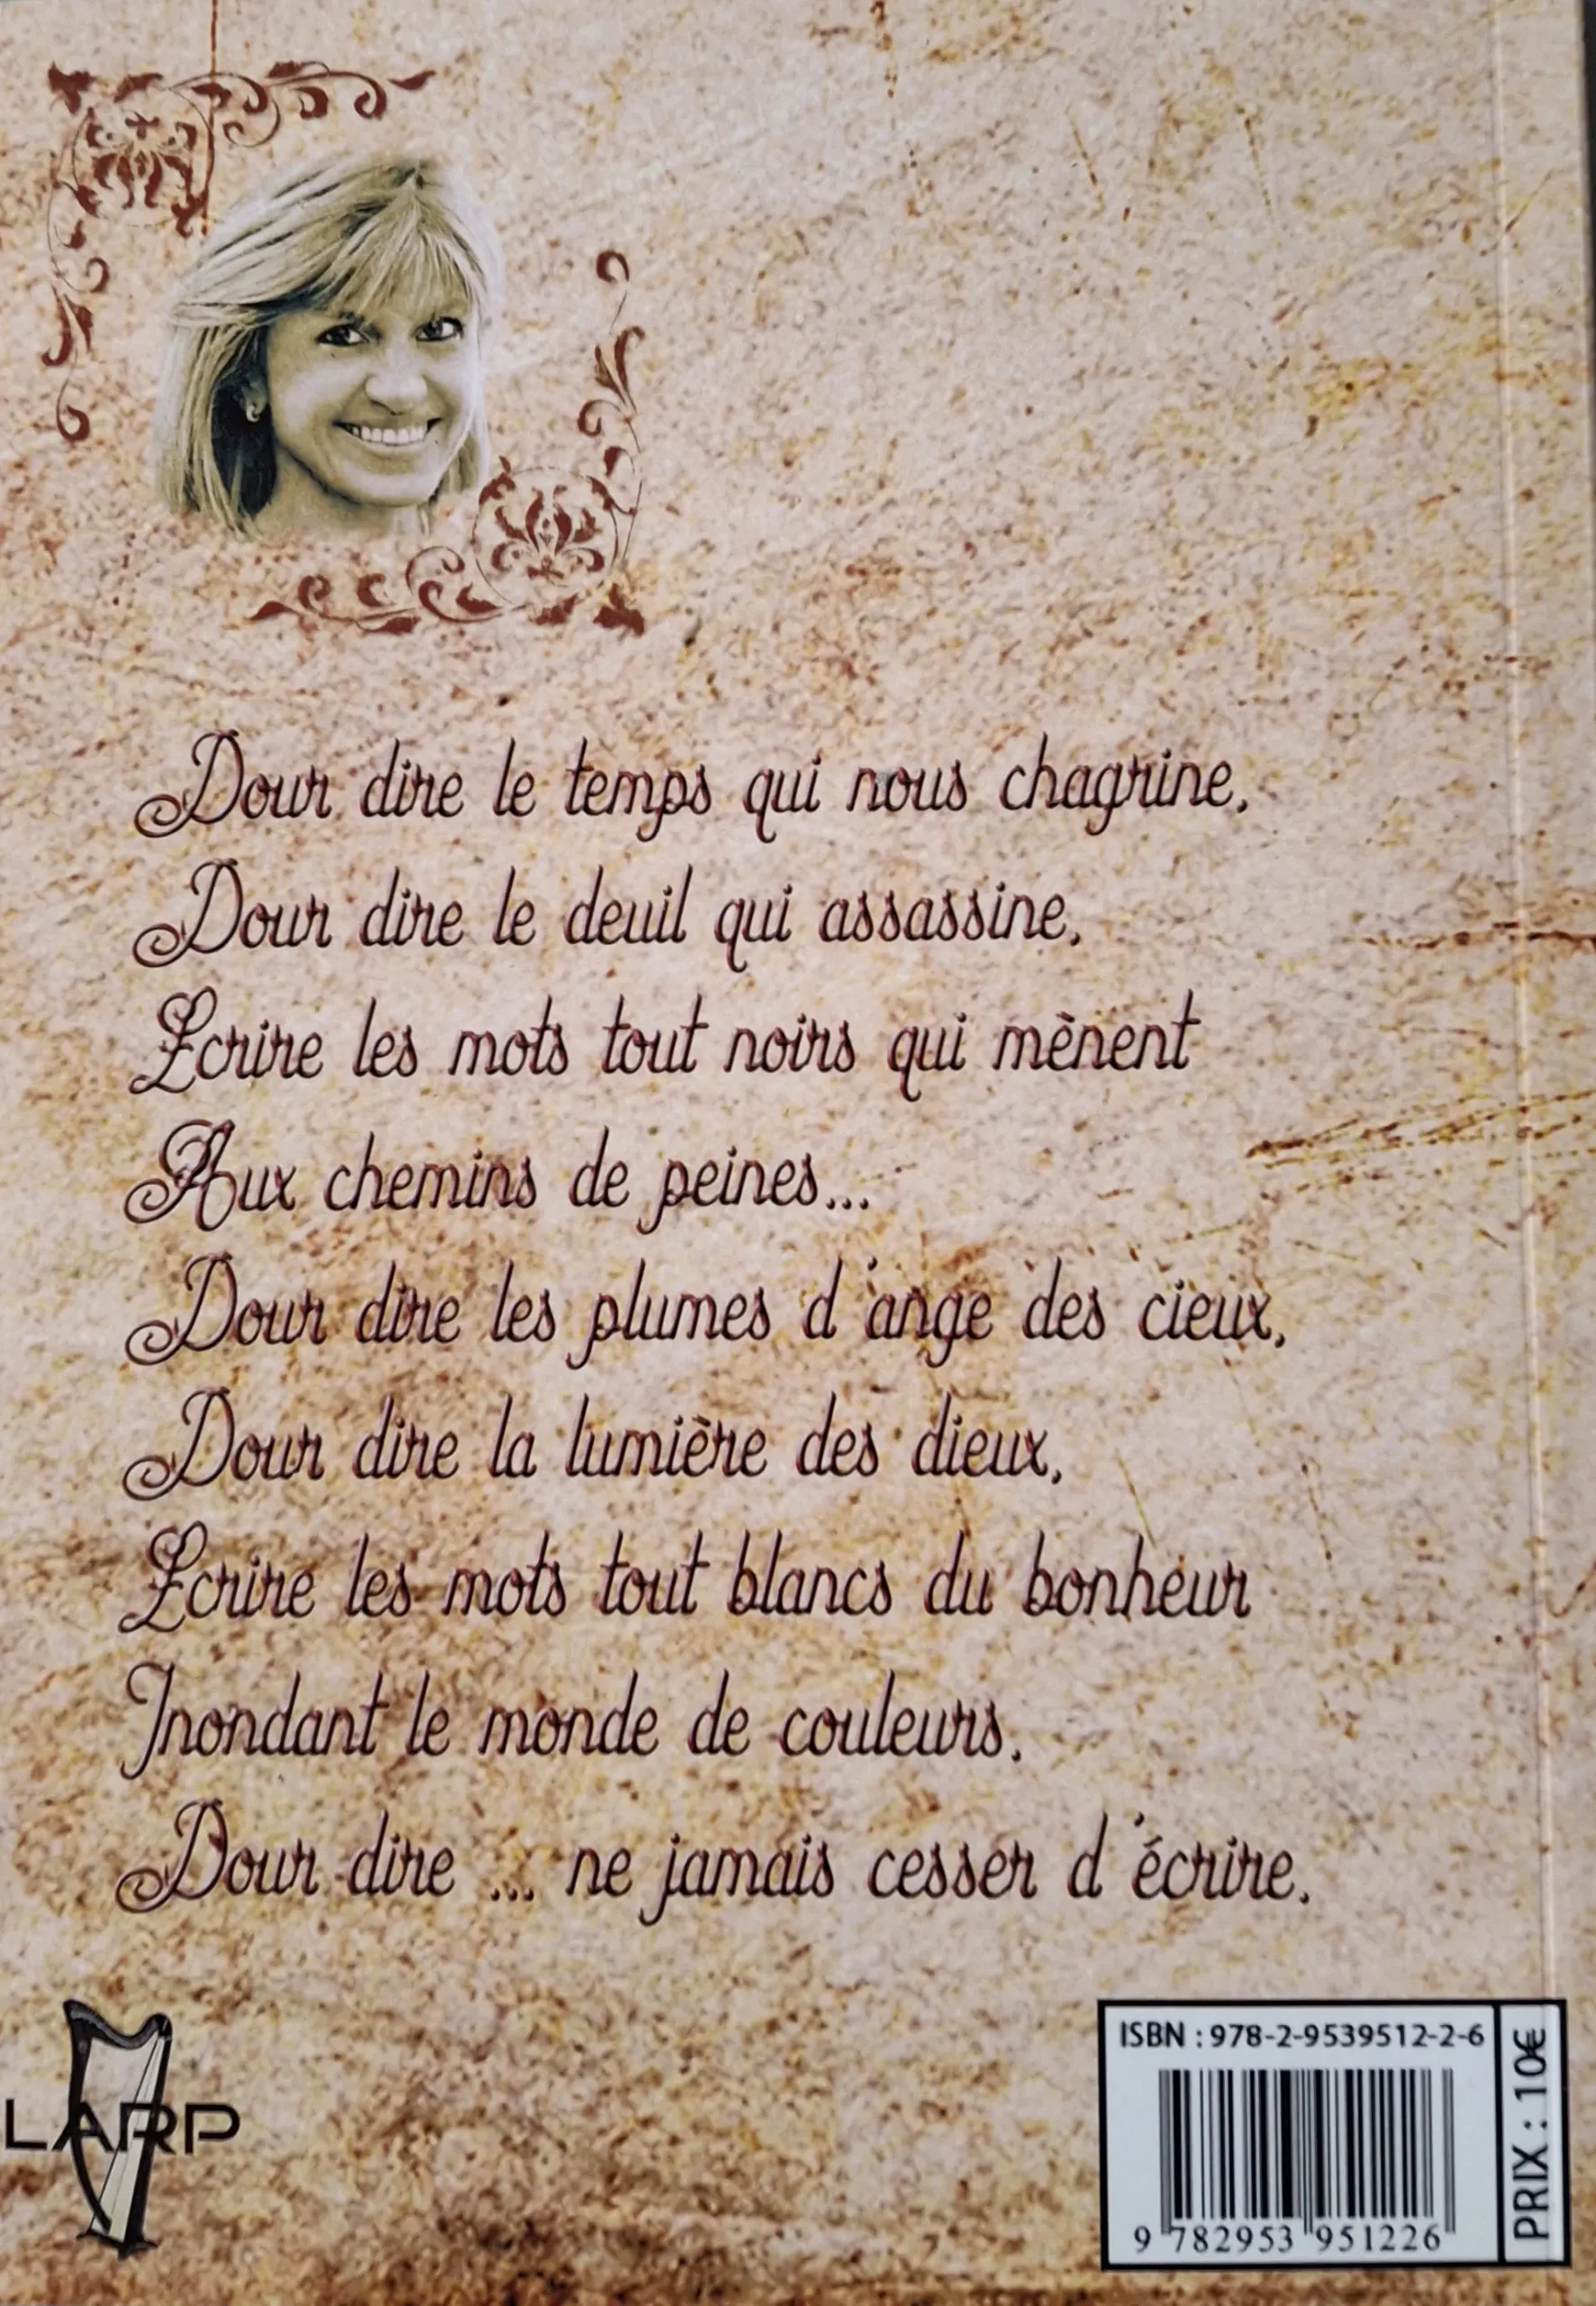 Pour dire le temps qui nous chagrine,
Pour dire le deuil qui assassine,
Ecrire les mots tout noirs qui mènent
Aux chemins de peines...
Pour dire les plumes d'ange des cieux,
Pour dire la lumière des dieux,
Ecrire les mots tout blancs du bonheur
Inondant le monde de couleurs.
Pour dire ... ne jamais cesser d'écrire.
LARP
ISBN : 978-2-9539512-2-6
9 782953 951226
PRIX : 10€